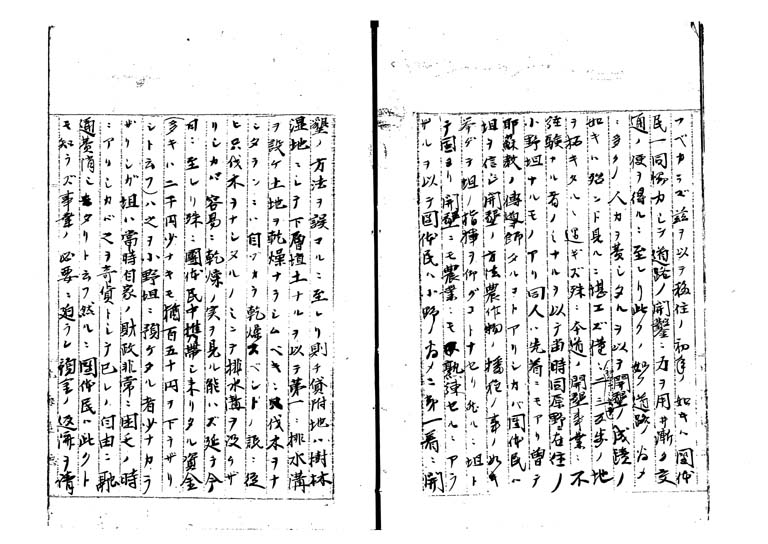 フベカラズ玆ヲ以テ移住ノ初年ノ如キハ団体
民一同協力シテ道路ノ開鑿ニ力ヲ用ヰ漸ク交
通ノ便ヲ得ルニ至レリ此クノ如ク道路ノ為メ
ニ多クノ人力ヲ費シタルヲ以テ開墾ノ成蹟ノ
如キハ殆ンド見ルニ堪エズ僅ニ二三五歩ノ地
ヲ拓キタルニ過ギズ殊ニ今道ノ開墾事業ニ不
経験ナル者ノミナルヲ以テ当時同原野在住ノ
小野坦ナルモノアリ同人ハ先着ニモアリ曽テ
耶蘇教ノ傳導師タルコトアリシカバ団体民ハ
坦ヲ信シ開墾ノ方法農作物ノ播種ノ事ノ如キ
ヲ坦ノ指揮ヲ仰グコトナセリ然ルニ坦ト
テ固ヨリ開墾ニモ農業ニモ熟練セルニアラ
ザルヲ以テ団体民ハ小野ノ為メニ第一着ニ開
墾ノ方法ヲ誤マルニ至レリ則チ貸附地ハ樹林
湿地ニシテ下層埴土ナルヲ以テ第一ニ排水溝
ヲ設ケ土地ヲ乾燥ナラシムベキニ伐木ヲナ
シタランニハ自ヅカラ乾燥スベシトノ説ニ従
ヒ只伐木ヲナシタルノミニテ排水溝ヲ設ケザ
リシカバ容易ニ乾燥ノ実ヲ見ル能ハズ延テ今
日ニ至レリ殊ニ團体民中携帯シ来リタル資金
多キハ二千円少ナキモ猶百五十円ヲ下ラザリ
シト云フ八之ヲ小野坦ニ預ケタル者少ナカラ
ザリシガ坦ハ當時自家ノ財政非常ニ困モノ時
ニアリシカバ之ヲ奇貨トシテ己レノ自由ニ融
通費消シタリト云フ然ルニ団体民ハ此クト
モ知ラズ事業ノ必要ニ迫ラレ預金ノ返済ヲ請